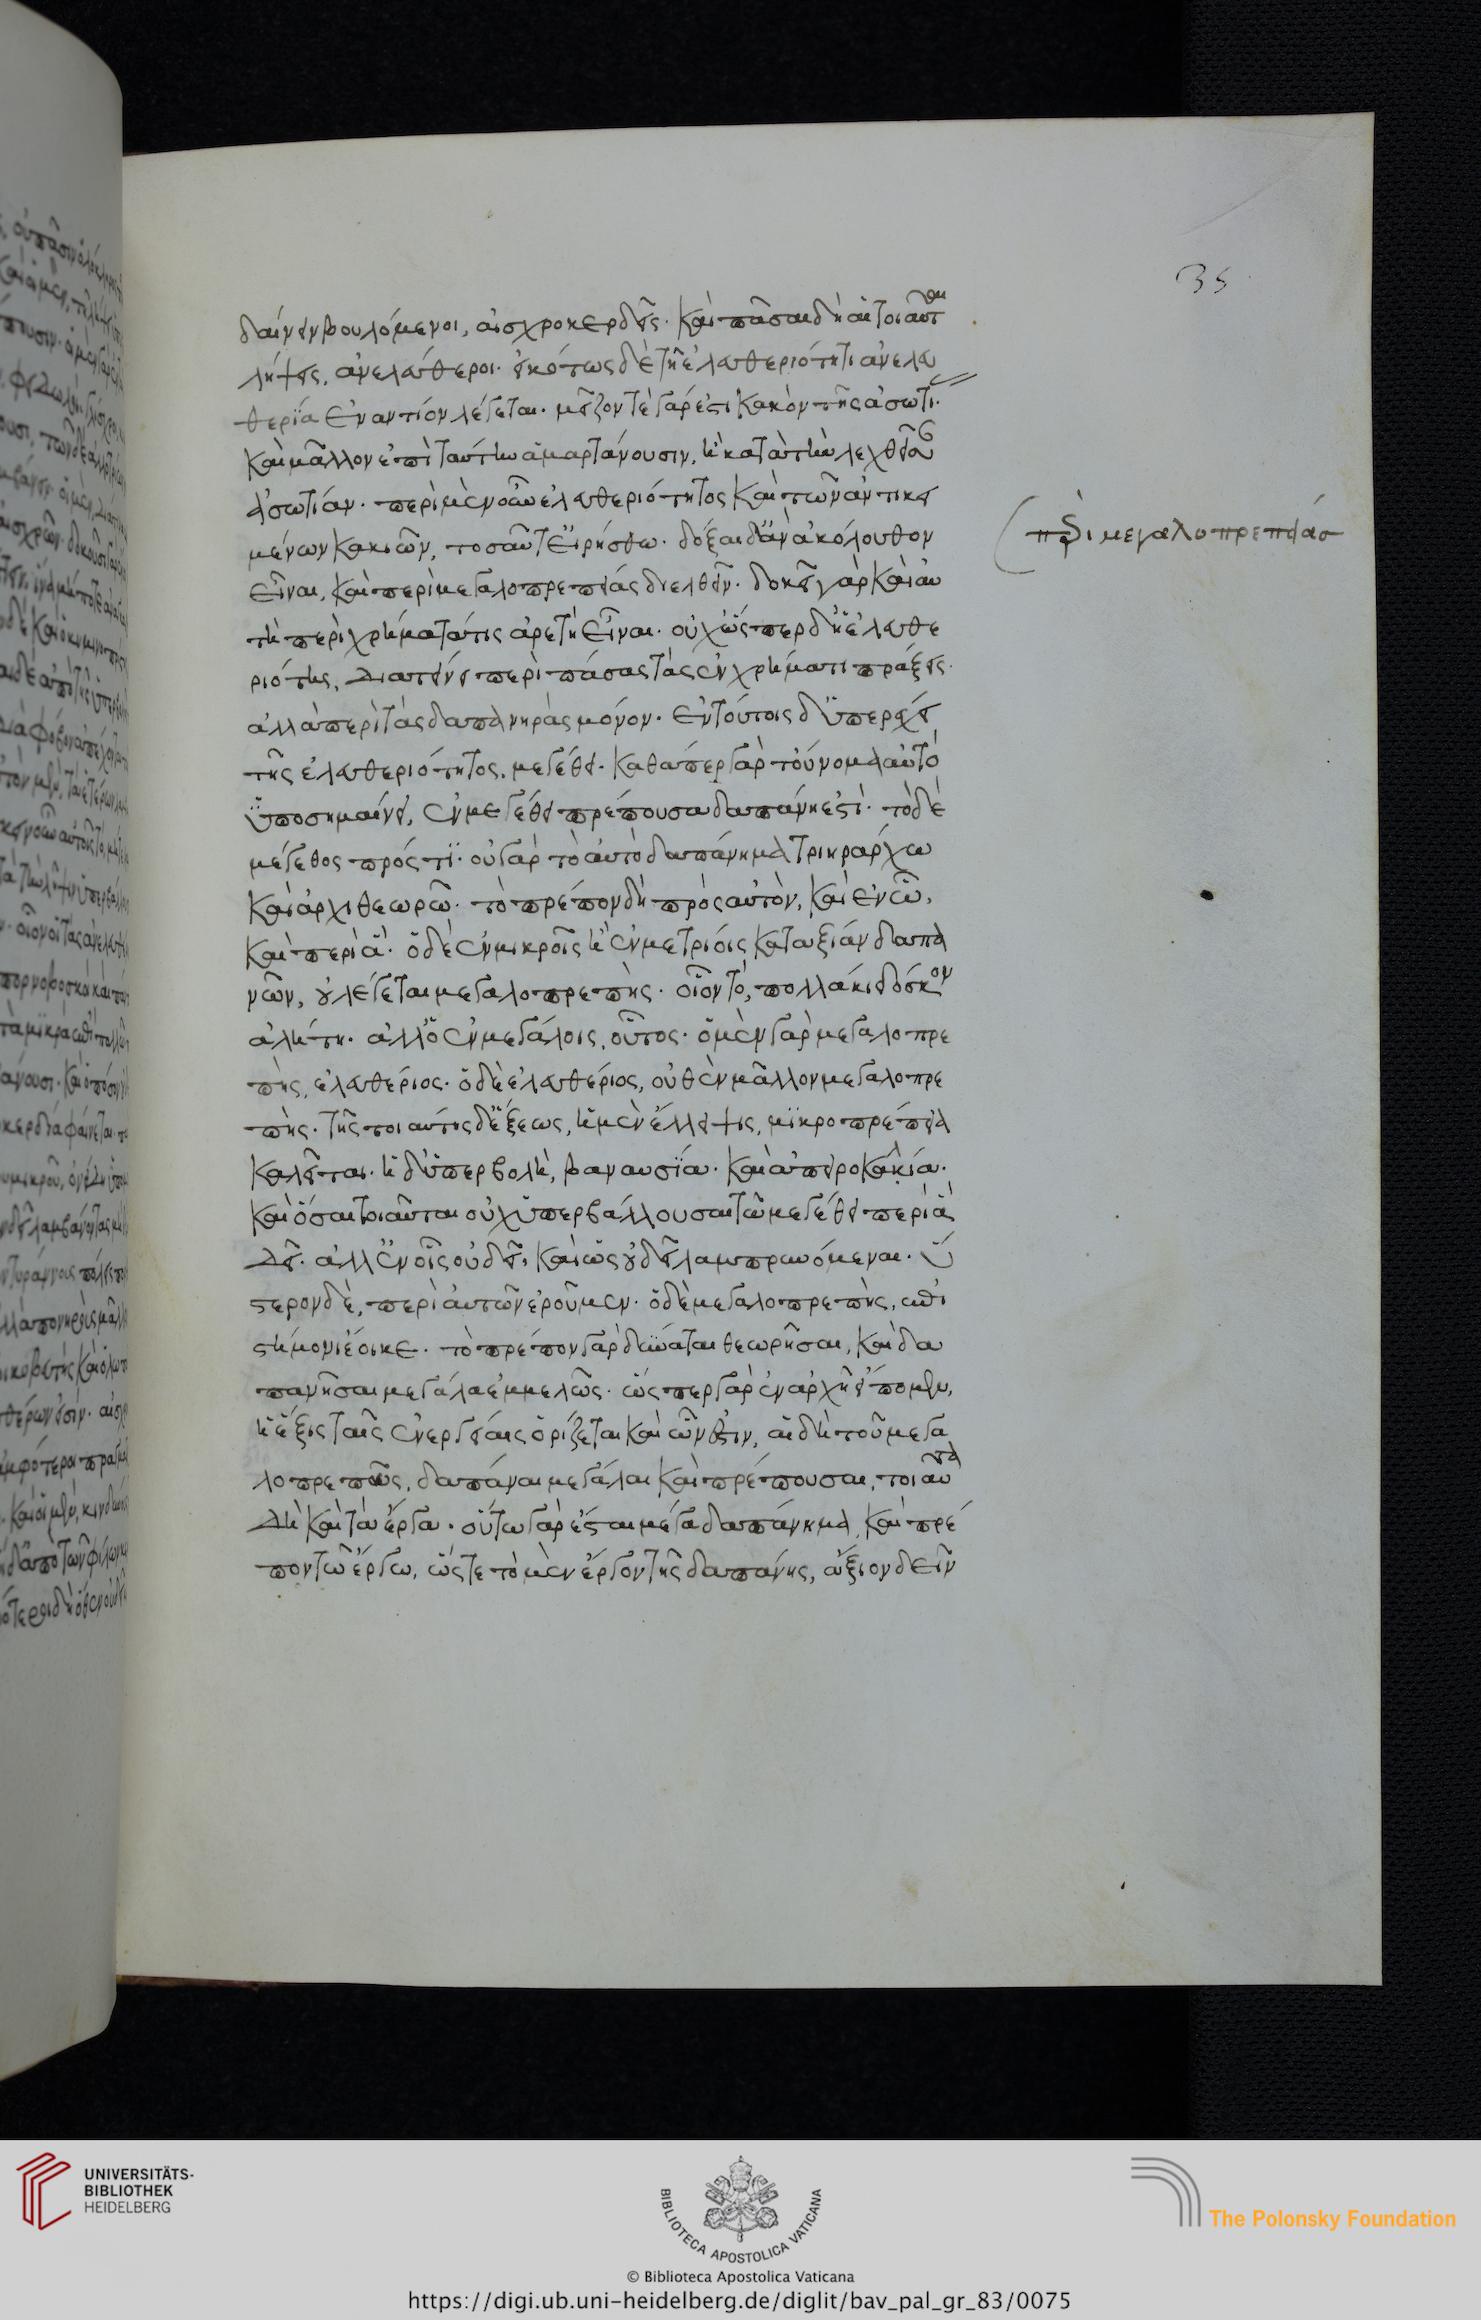 35
δαίνειν βουλόμενοι, αἰσχροκερδεῖς. καὶ πᾶσαι δὴ αἱ τοιαῦται
λήψεις, ἀνελεύθεροι. εἰκότως δὲ τῇ ἐλευθεριότητι ἀνελευ
θερία ἐναντίον λέγεται. μεῖζον τὲ γάρ ἐστι κακὸν τῆς ἀσωτί.
καὶ μᾶλλον ἐπὶ ταύτην ἁμαρτάνουσιν, ἢ κατὰ τὴν λεχθεῖσαν
ἀσωτίαν. περὶ μὲν οὖν ἐλευθεριότητος καὶ τῶν ἀντικει
μένων κακιῶν, τοσαῦτ' εἰρήσθω. δόξαι δ' ἂν ἀκόλουθον
εἶναι, καὶ περὶ μεγαλοπρεπείας διελθεῖν. δοκεῖ γὰρ καὶ αὐ
τὴ περὶ χρήματά τις ἀρετὴ εἶναι. οὐχ ὥσπερ δ' ἡ ἐλευθε
ριότης, διατείνει περὶ πάσας τὰς ἐν χρήμασι πράξεις.
ἀλλὰ περὶ τὰς δαπανηρὰς μόνον. ἐν τούτοις δ' ὑπερέχει
τῆς ἐλευθεριότητος, μεγέθει. καθάπερ γὰρ τοὔνομα αὐτὸ
ὑποσημαίνει, ἐν μεγέθει πρέπουσα δαπάνη ἐστί. τὸ δὲ
μέγεθος πρός τι. οὐ γὰρ τὸ αὐτὸ δαπάνημα τριηράρχω
καὶ ἀρχιθεωρῶ. τὸ πρέπον δὴ πρὸς αὐτὸν, καὶ ἐν ὧ,
καὶ περὶ ἅ. ὁ δὲ ἐν μικροῖς ἢ ἐν μετρίοις κατ' ἀξίαν δαπα
νῶν, οὐ λέγεται μεγαλοπρεπής. οἷον τό, πολλάκι δόσκον
ἀλήτη. ἀλλ' ὁ ἐν μεγάλοις, οὕτος. ὁ μὲν γὰρ μεγαλοπρε
πὴς, ἐλευθέριος. ὁ δὲ ἐλευθέριος, οὐθὲν μᾶλλον μεγαλοπρε
πής. τῆς τοιαύτης δ' ἕξεως, ἡ μὲν ἔλλειψις, μικροπρέπεια
καλεῖται. ἡ δ' ὑπερβολὴ, βαναυσία. καὶ ἀπειροκαλία.
καὶ ὅσαι τοιαῦται οὐχ ὑπερβάλλουσαι τῶ μεγέθει περὶ ἃ
δεῖ. ἀλλ' ἐν οἷς οὐ δεῖ, καὶ ὡς οὐ δεῖ λαμπρυνόμεναι. ὕ
στερον δὲ, περὶ αὐτῶν ἐροῦμεν. ὁ δὲ μεγαλοπρεπὴς, ἐπι
στήμονι ἔοικε. τὸ πρέπον γὰρ δύναται θεωρῆσαι, καὶ δα
πανῆσαι μεγάλα ἐμμελῶς. ὥσπερ γὰρ ἐν ἀρχῇ εἴπομεν,
ἡ ἕξις ταῖς ἐνεργείαις ὁρίζεται καὶ ὧν ἐστιν, αἱ δὴ τοῦ μεγα
λοπρεποῦς, δαπάναι μεγάλαι καὶ πρέπουσαι, τοιαῦτα
δὴ καὶ τὰ ἔργα. οὕτω γὰρ ἔσται μέγα δαπάνημα, καὶ πρέ
πον τῶ ἔργω, ὥστε τὸ μὲν ἔργον τῆς δαπάνης, ἄξιον δεῖν
περὶ μεγαλοπρεπείασ
UNIVERSITÄTS-
BIBLIOTHEK
HEIDELBERG
BIBLIOTECA APOSTOLICA VATICANA
The Polonsky Foundation
© Biblioteca Apostolica Vaticana
https://digi.ub.uni-heidelberg.de/diglit/bav_pal_gr_83/0075